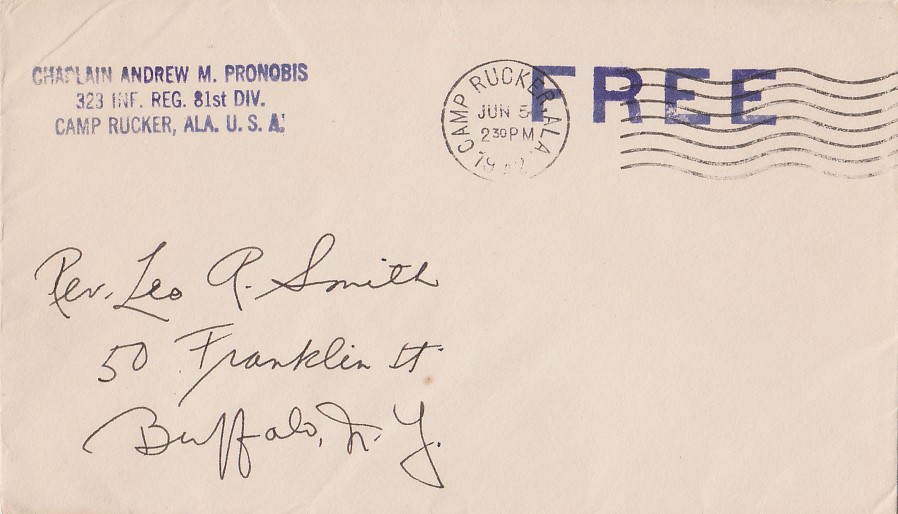 CHAPLAIN ANDREW M. PRONOBIS
323 INF. REG. 81st DIV.
CAMP RUCKER, ALA. U. S. A.
CAMP RUCKER, ALA.
JUN 5
2 30 PM
1942
FREE
Rev. Leo R. Smith
50 Franklin St.
Buffalo, N. Y.